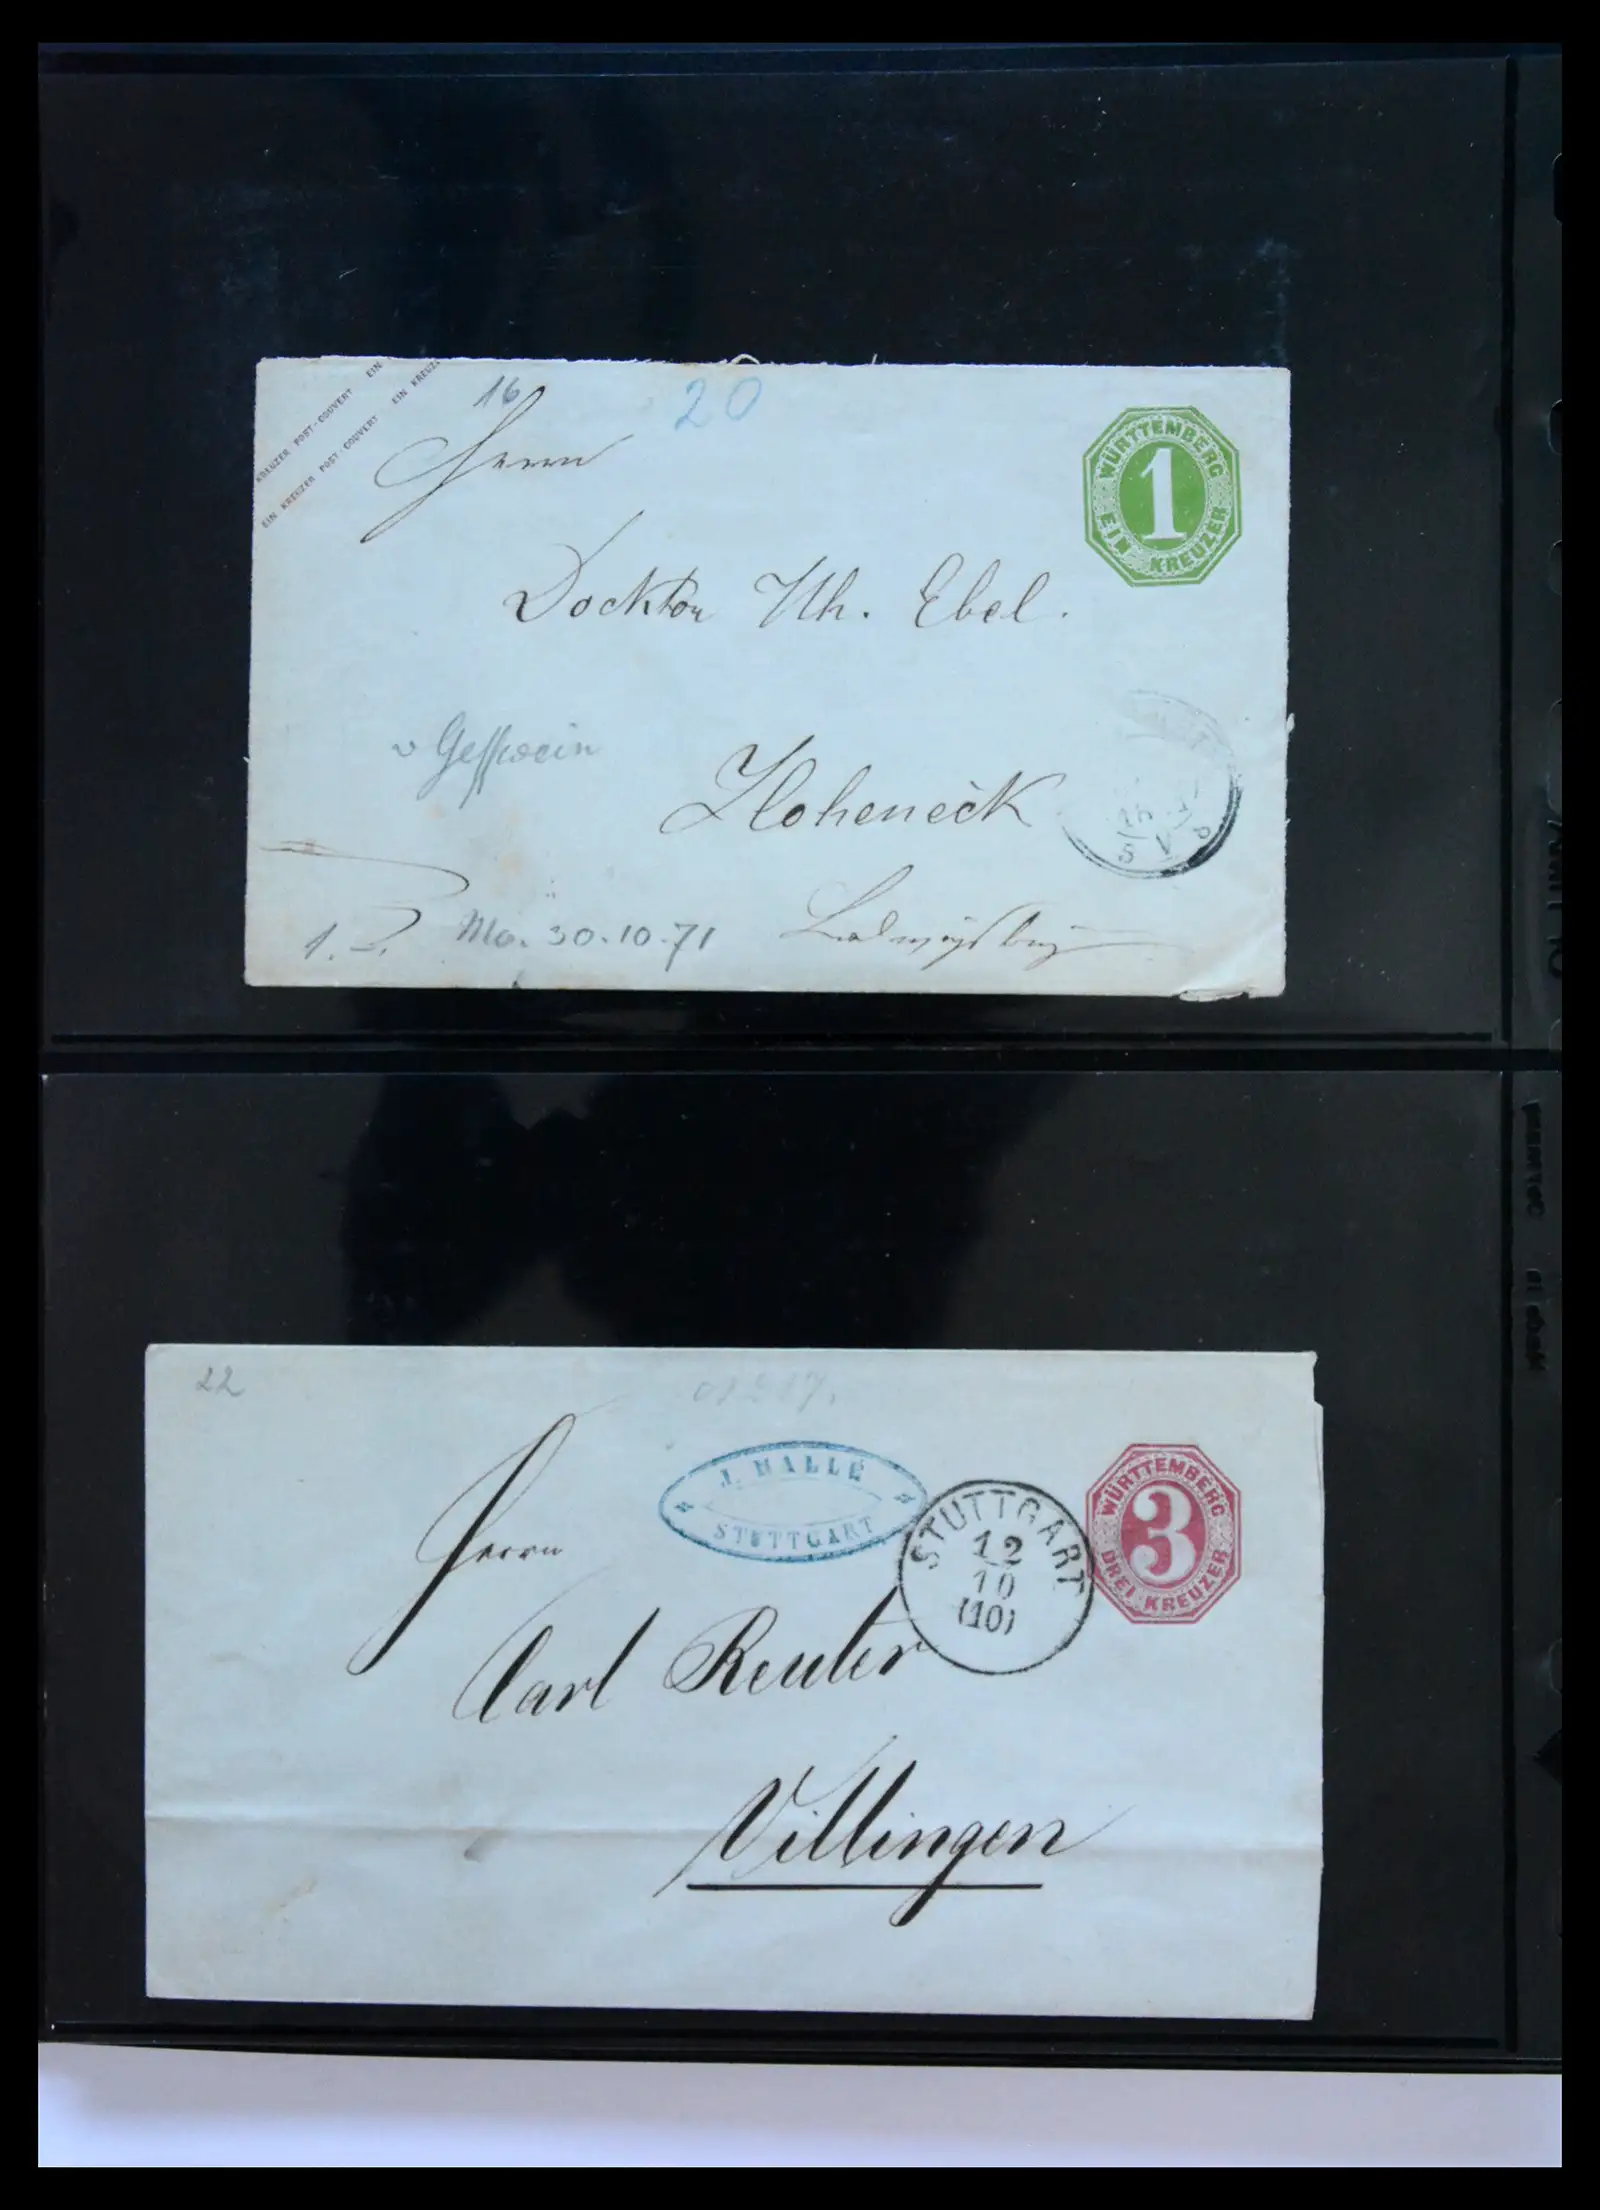 KREUZER POST-COUVERT EIN
EIN KREUZER POST-COUVERT EIN KREUZ
16
20
Herrn
WÜRTTEMBERG
1
EIN KREUZER
Dockktor Ebel.
Hoheneck
Ludwigsburg
1.
30.10.71
22
J. HALLÉ
STUTTGART
STUTTGART
12
10
(10)
WÜRTTEMBERG
3
DREI KREUZER
Herrn
Carl Reuter
Villingen